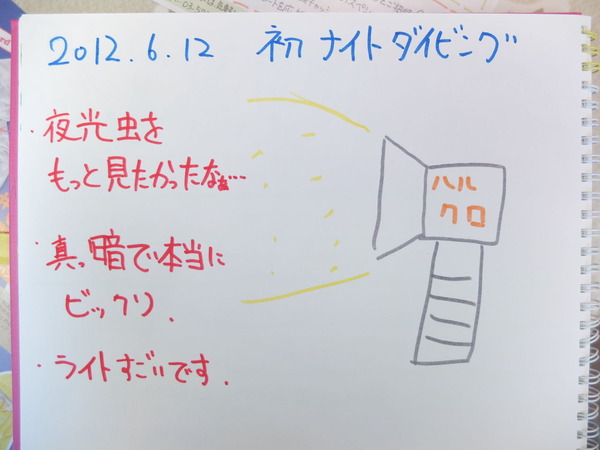 2012.6.12 初ナイトダイビング
・夜光虫を
もっと見たかったなぁ…
・真っ暗で本当に
ビックリ.
・ライトすごいです.
ハル
クロ